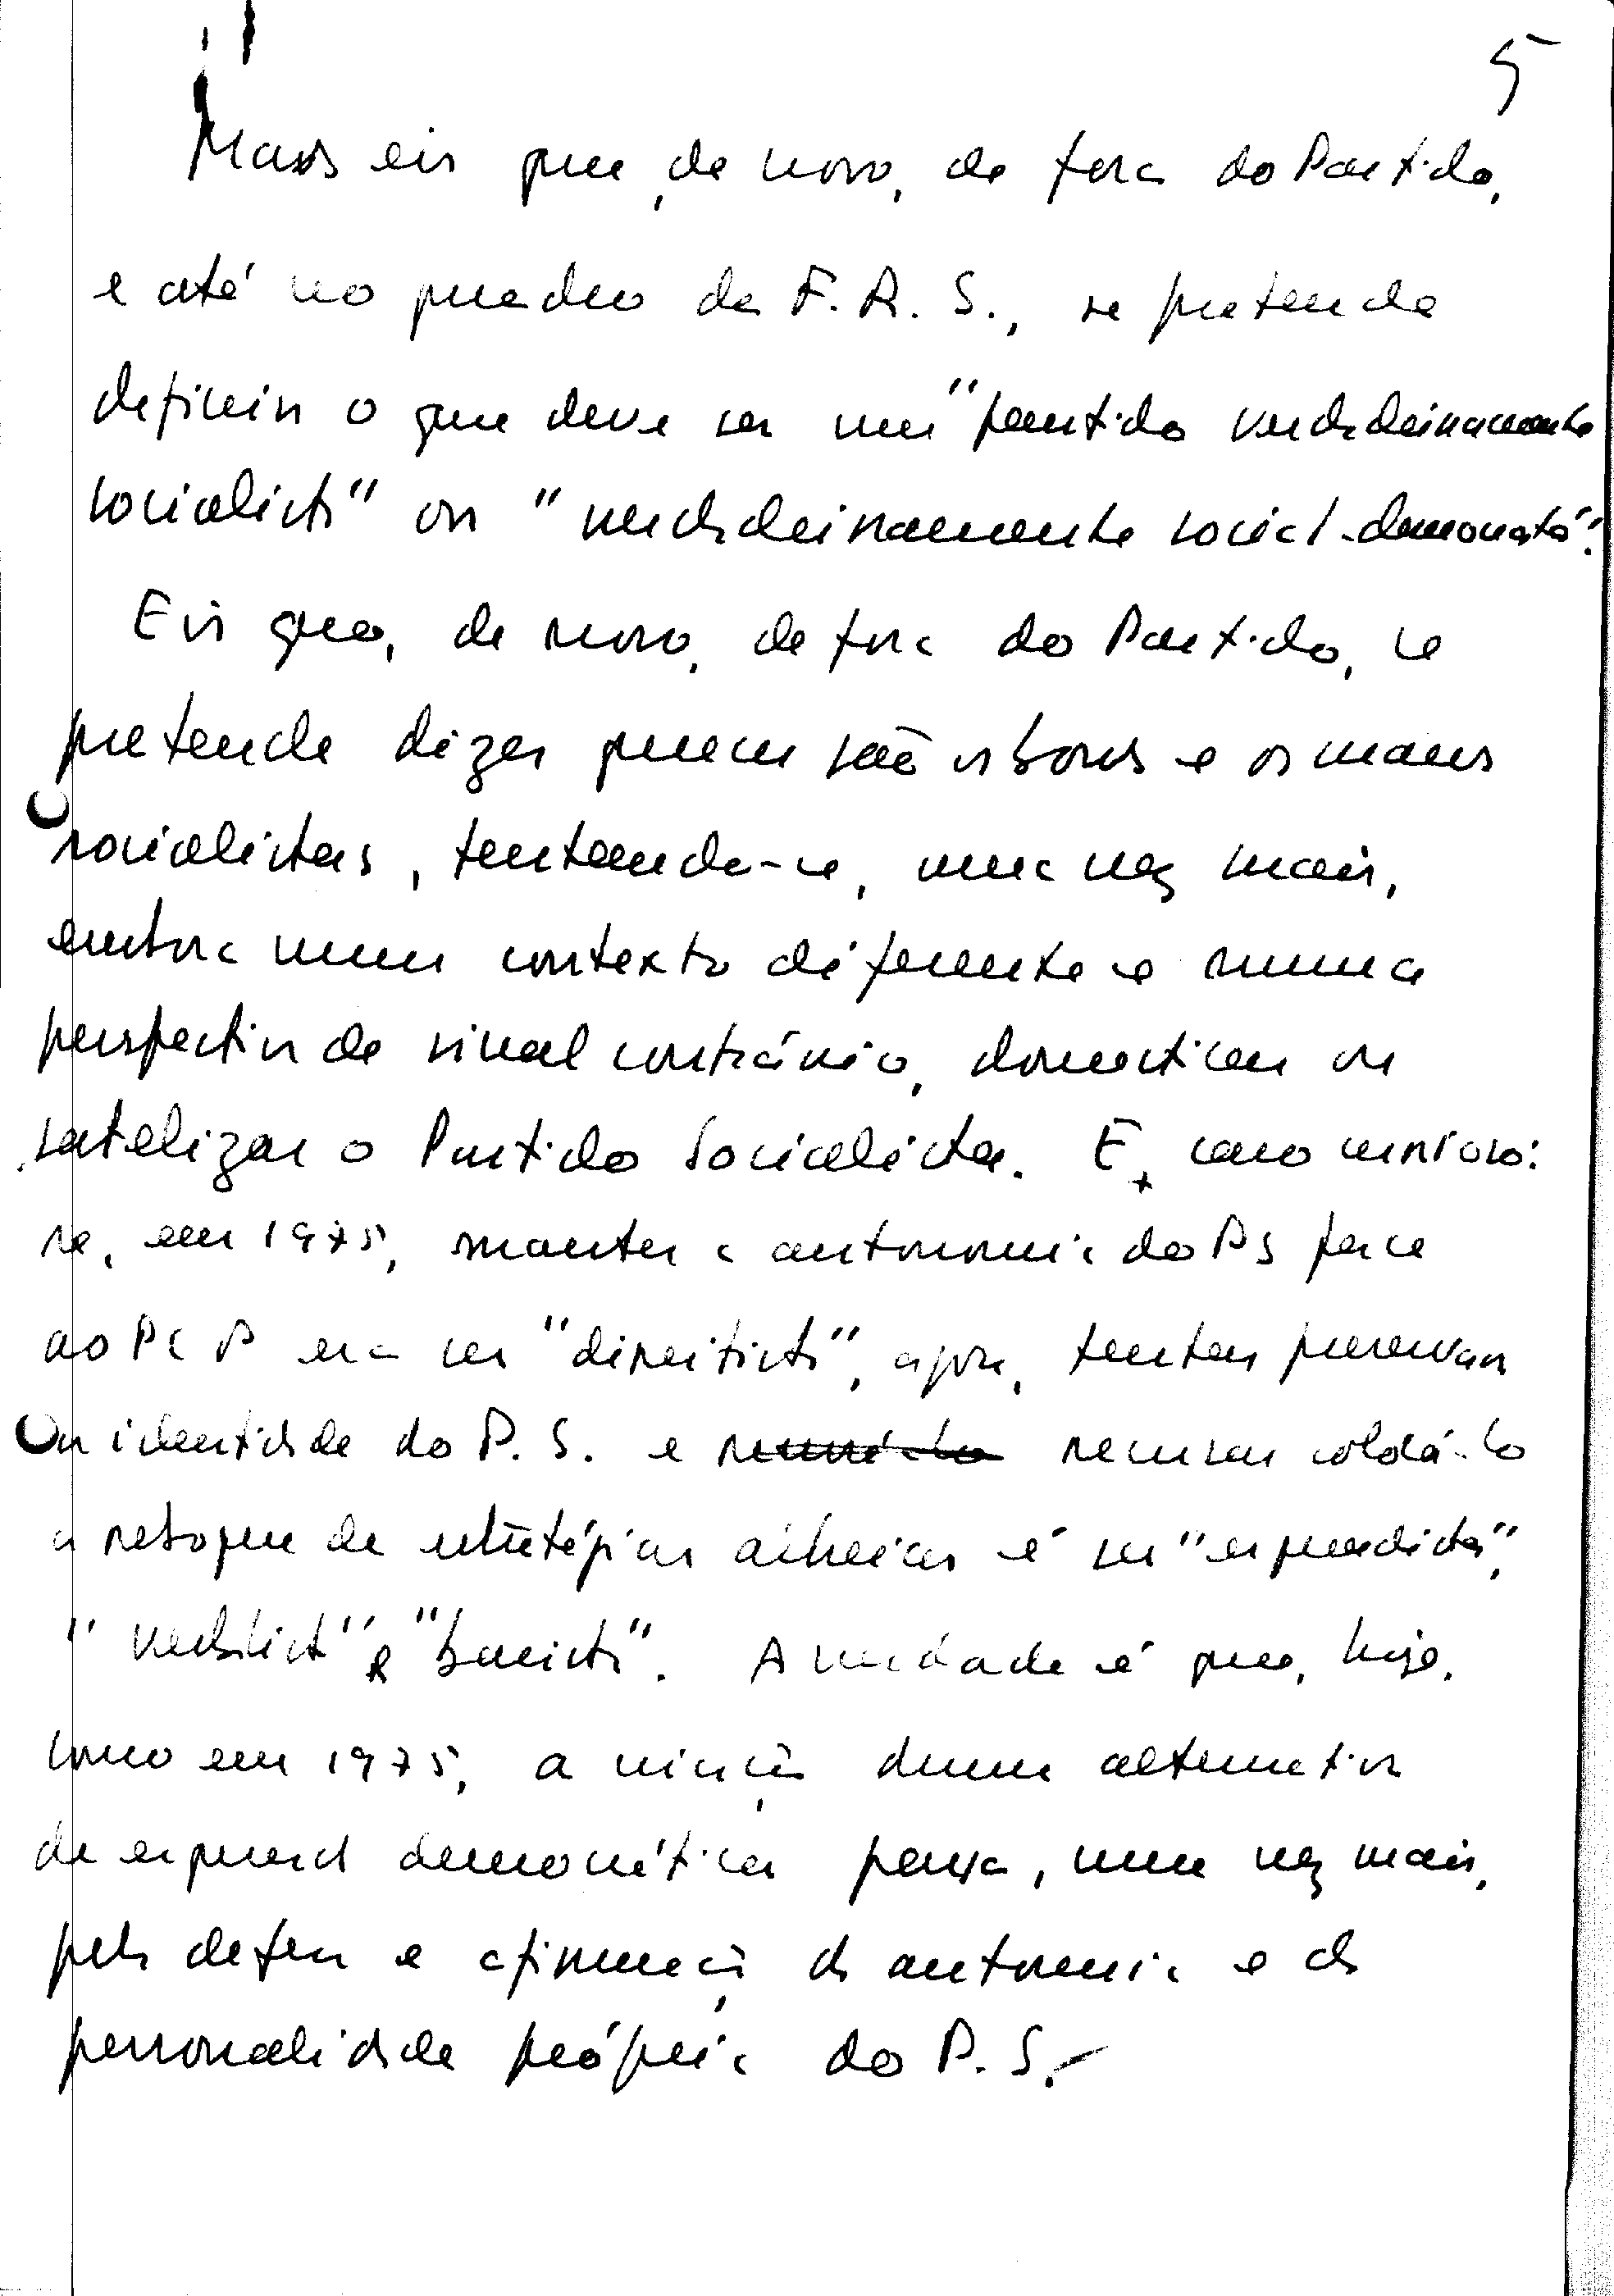 5
Mas eis que, de novo, de fora do Partido,
e até no quadro da F.R.S., se pretende
definir o que deve ser um "partido verdadeiramente
socialista" ou "verdadeiramente social-democrata".
Eis que, de novo, de fora do Partido, se
pretende dizer quem são os bons e os maus
socialistas, tentando-se, uma vez mais,
embora num contexto diferente e numa
perspectiva de sinal contrário, domesticar ou
satelizar o Partido Socialista. E, caso curioso:
se, em 1975, manter a autonomia do PS face
ao PCP era ser "direitista", agora, tentar preservar
a identidade do P.S. e recusar soldá-lo
a reboque de estratégias alheias é ser "esquerdista",
"verbalista" e "basista". A verdade é que, hoje,
como em 1975, a criação duma alternativa
de esquerda democrática passa, uma vez mais,
pela defesa e afirmação da autonomia e da
personalidade própria do P.S.-